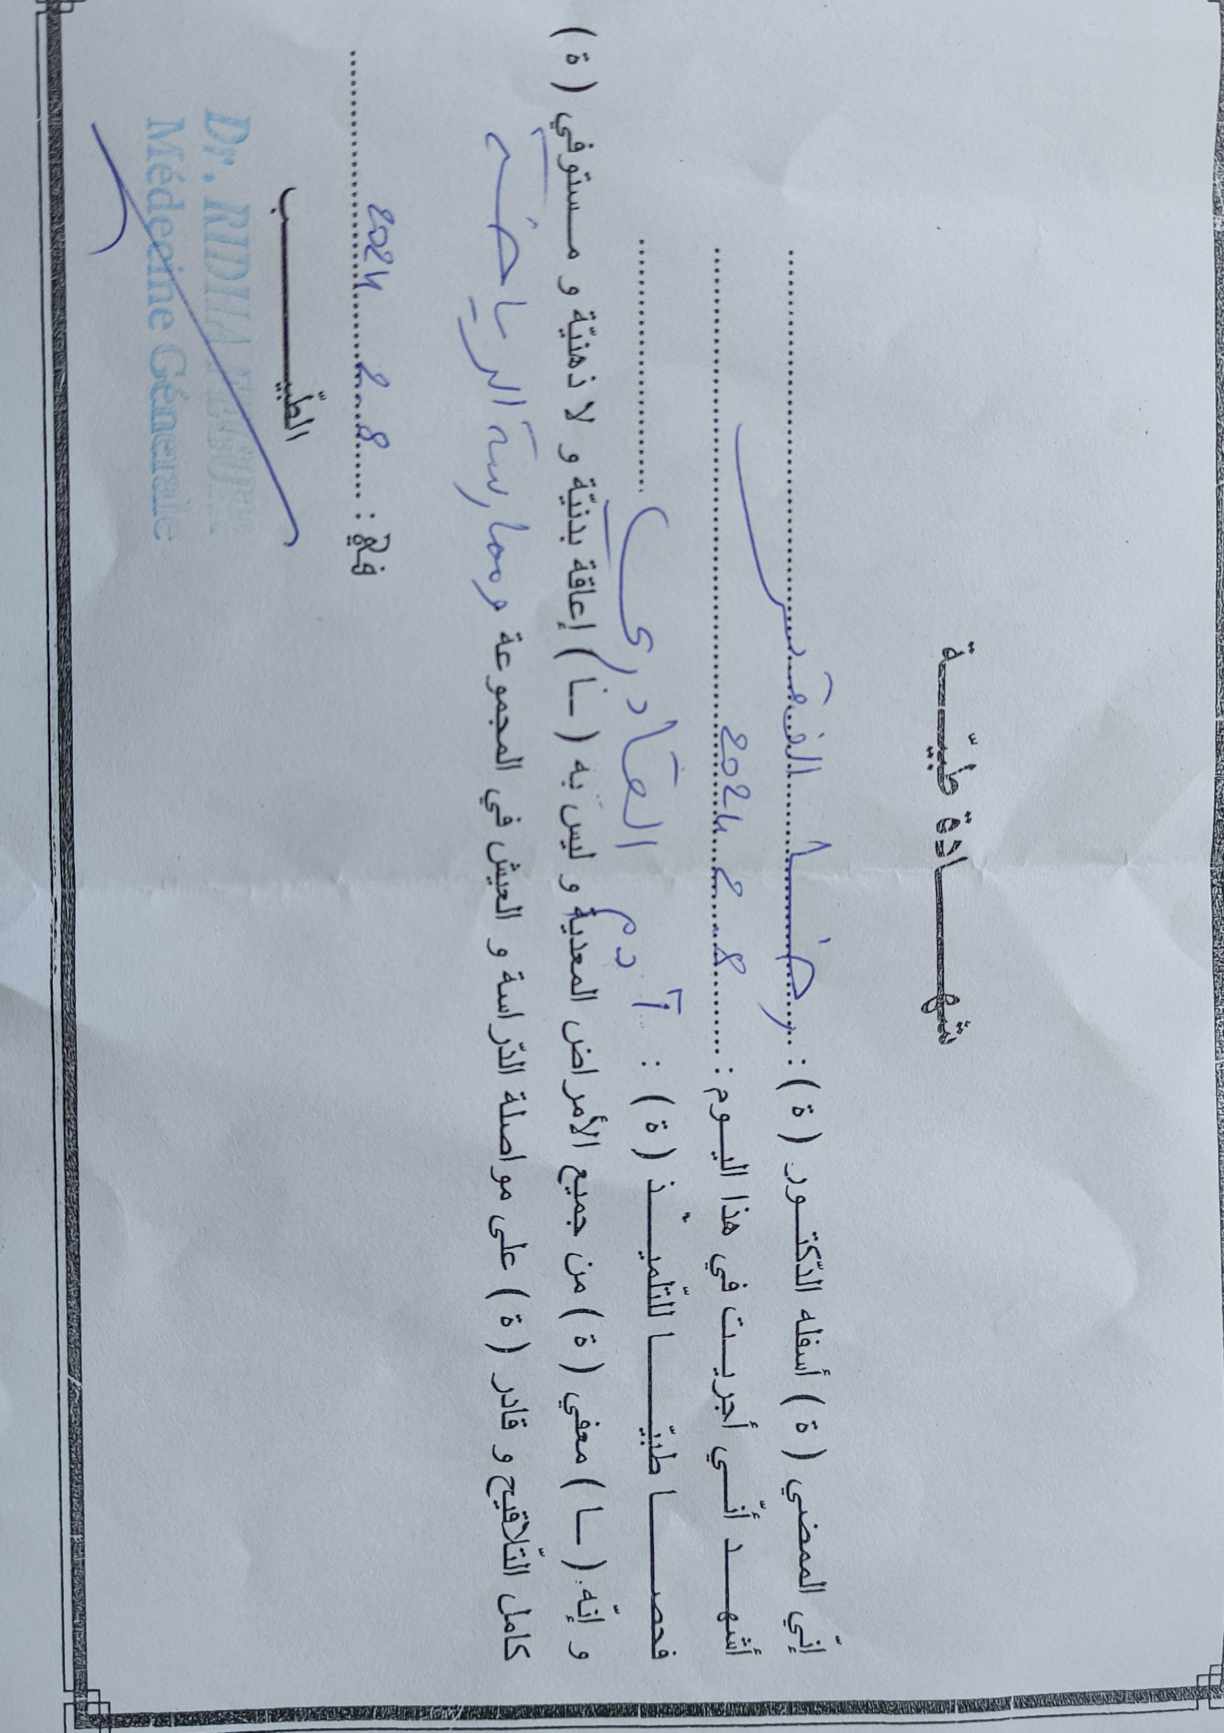 شهـــادة طبيّـــة
إنّي الممضي ( ة ) أسفله الدّكتـــور ( ة ) : رضـا
أشهـــد أنّـــي أجريـــت في هذا اليـــوم : 8 2 2024
فحصـــا طبيّـــا للتّلميـــذ ( ة ) : آدم القادري
و إنّه ( ـا ) معفي ( ة ) من جميع الأمراض المعدية و ليس به ( ـا ) إعاقة بدنيّة و لا ذهنيّة و مستوفي ( ة )
كامل التّلاقيح و قادر ( ة ) على مواصلة الدّراسة و العيش في المجموعة وممارسة الرياضة
في : 8 2 2024
الطّبيـــب
Dr. RIDHA
Médecine Générale